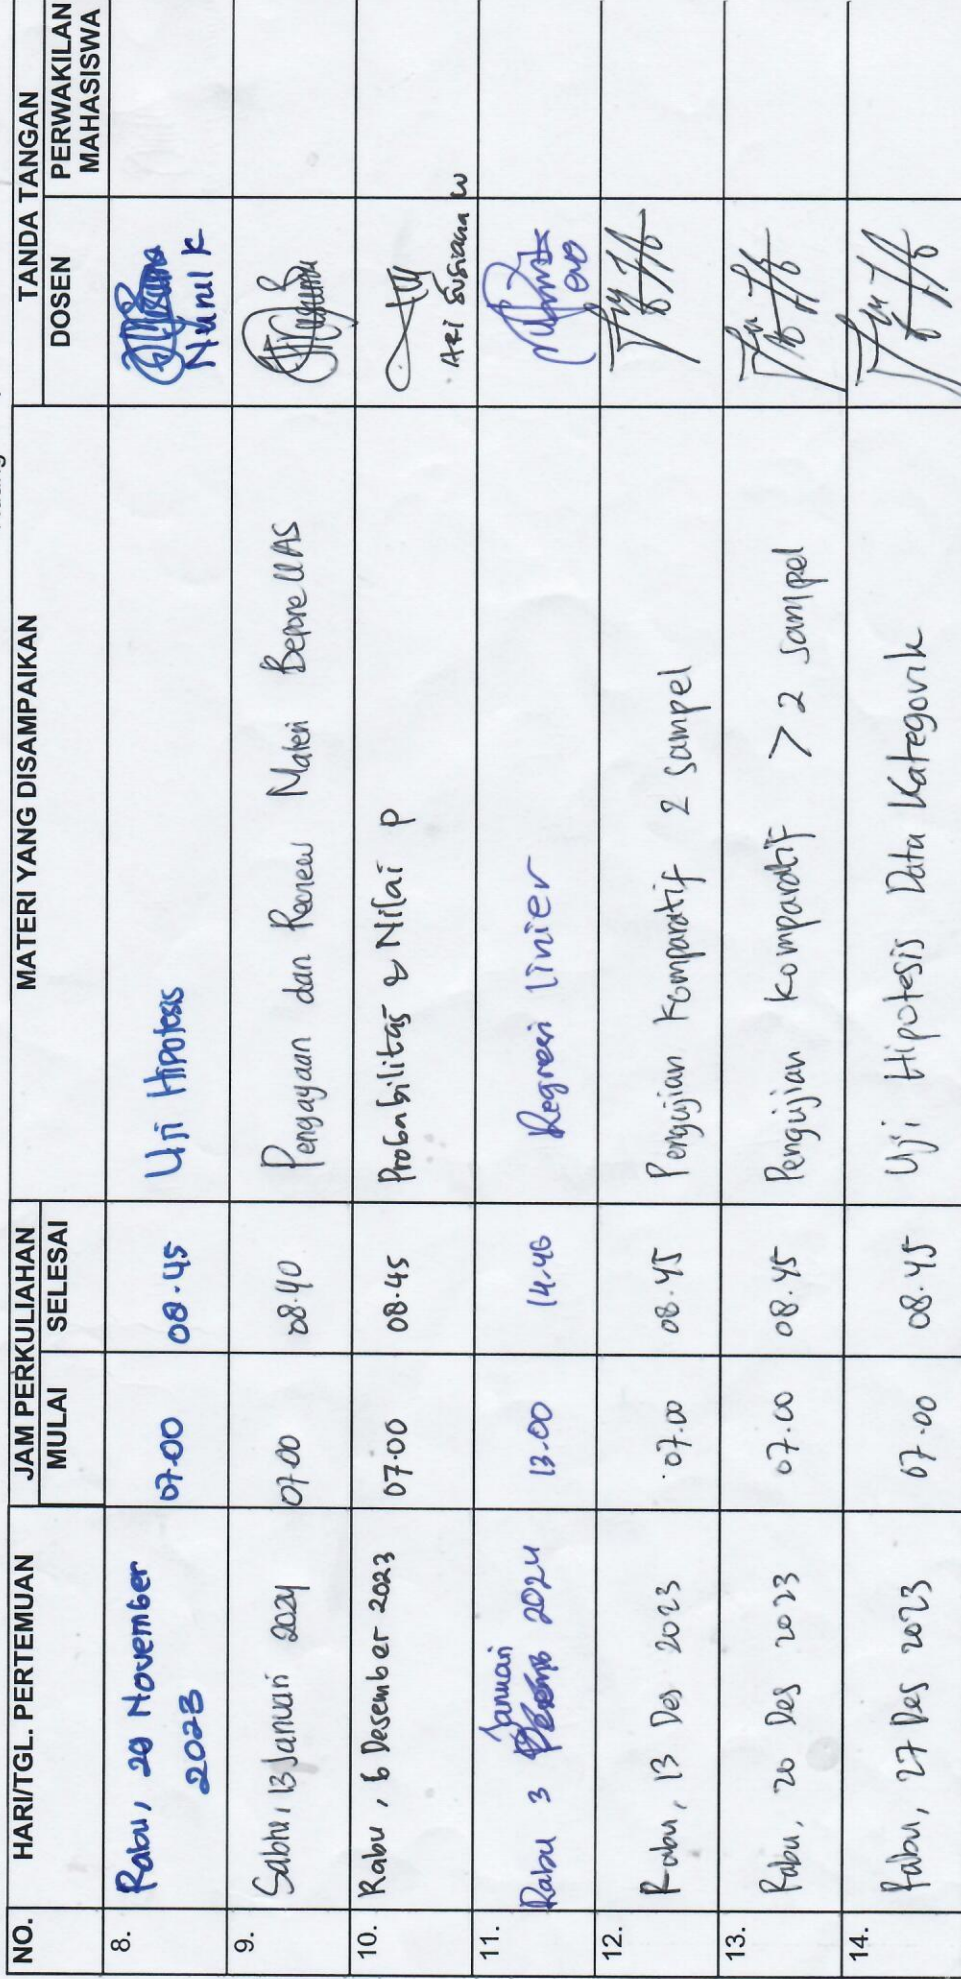 NO. HARI/TGL. PERTEMUAN JAM PERKULIAHAN MATERI YANG DISAMPAIKAN TANDA TANGAN
MULAI SELESAI DOSEN PERWAKILAN MAHASISWA
8. Rabu, 29 November 2023 07.00 08.45 Uji Hipotesis Nunil K
9. Sabtu, 13 Januari 2024 07.00 08.40 Pengayaan dan Review Materi Before UAS
10. Rabu, 6 Desember 2023 07.00 08.45 Probabilitas & Nilai P Ari Susiana W
11. Rabu 3 Januari 2024 13.00 14.46 Regresi Linier
12. Rabu, 13 Des 2023 07.00 08.45 Pengujian Komparatif 2 sampel
13. Rabu, 20 Des 2023 07.00 08.45 Pengujian Komparatif > 2 sampel
14. Rabu, 27 Des 2023 07.00 08.45 Uji Hipotesis Data Kategorik